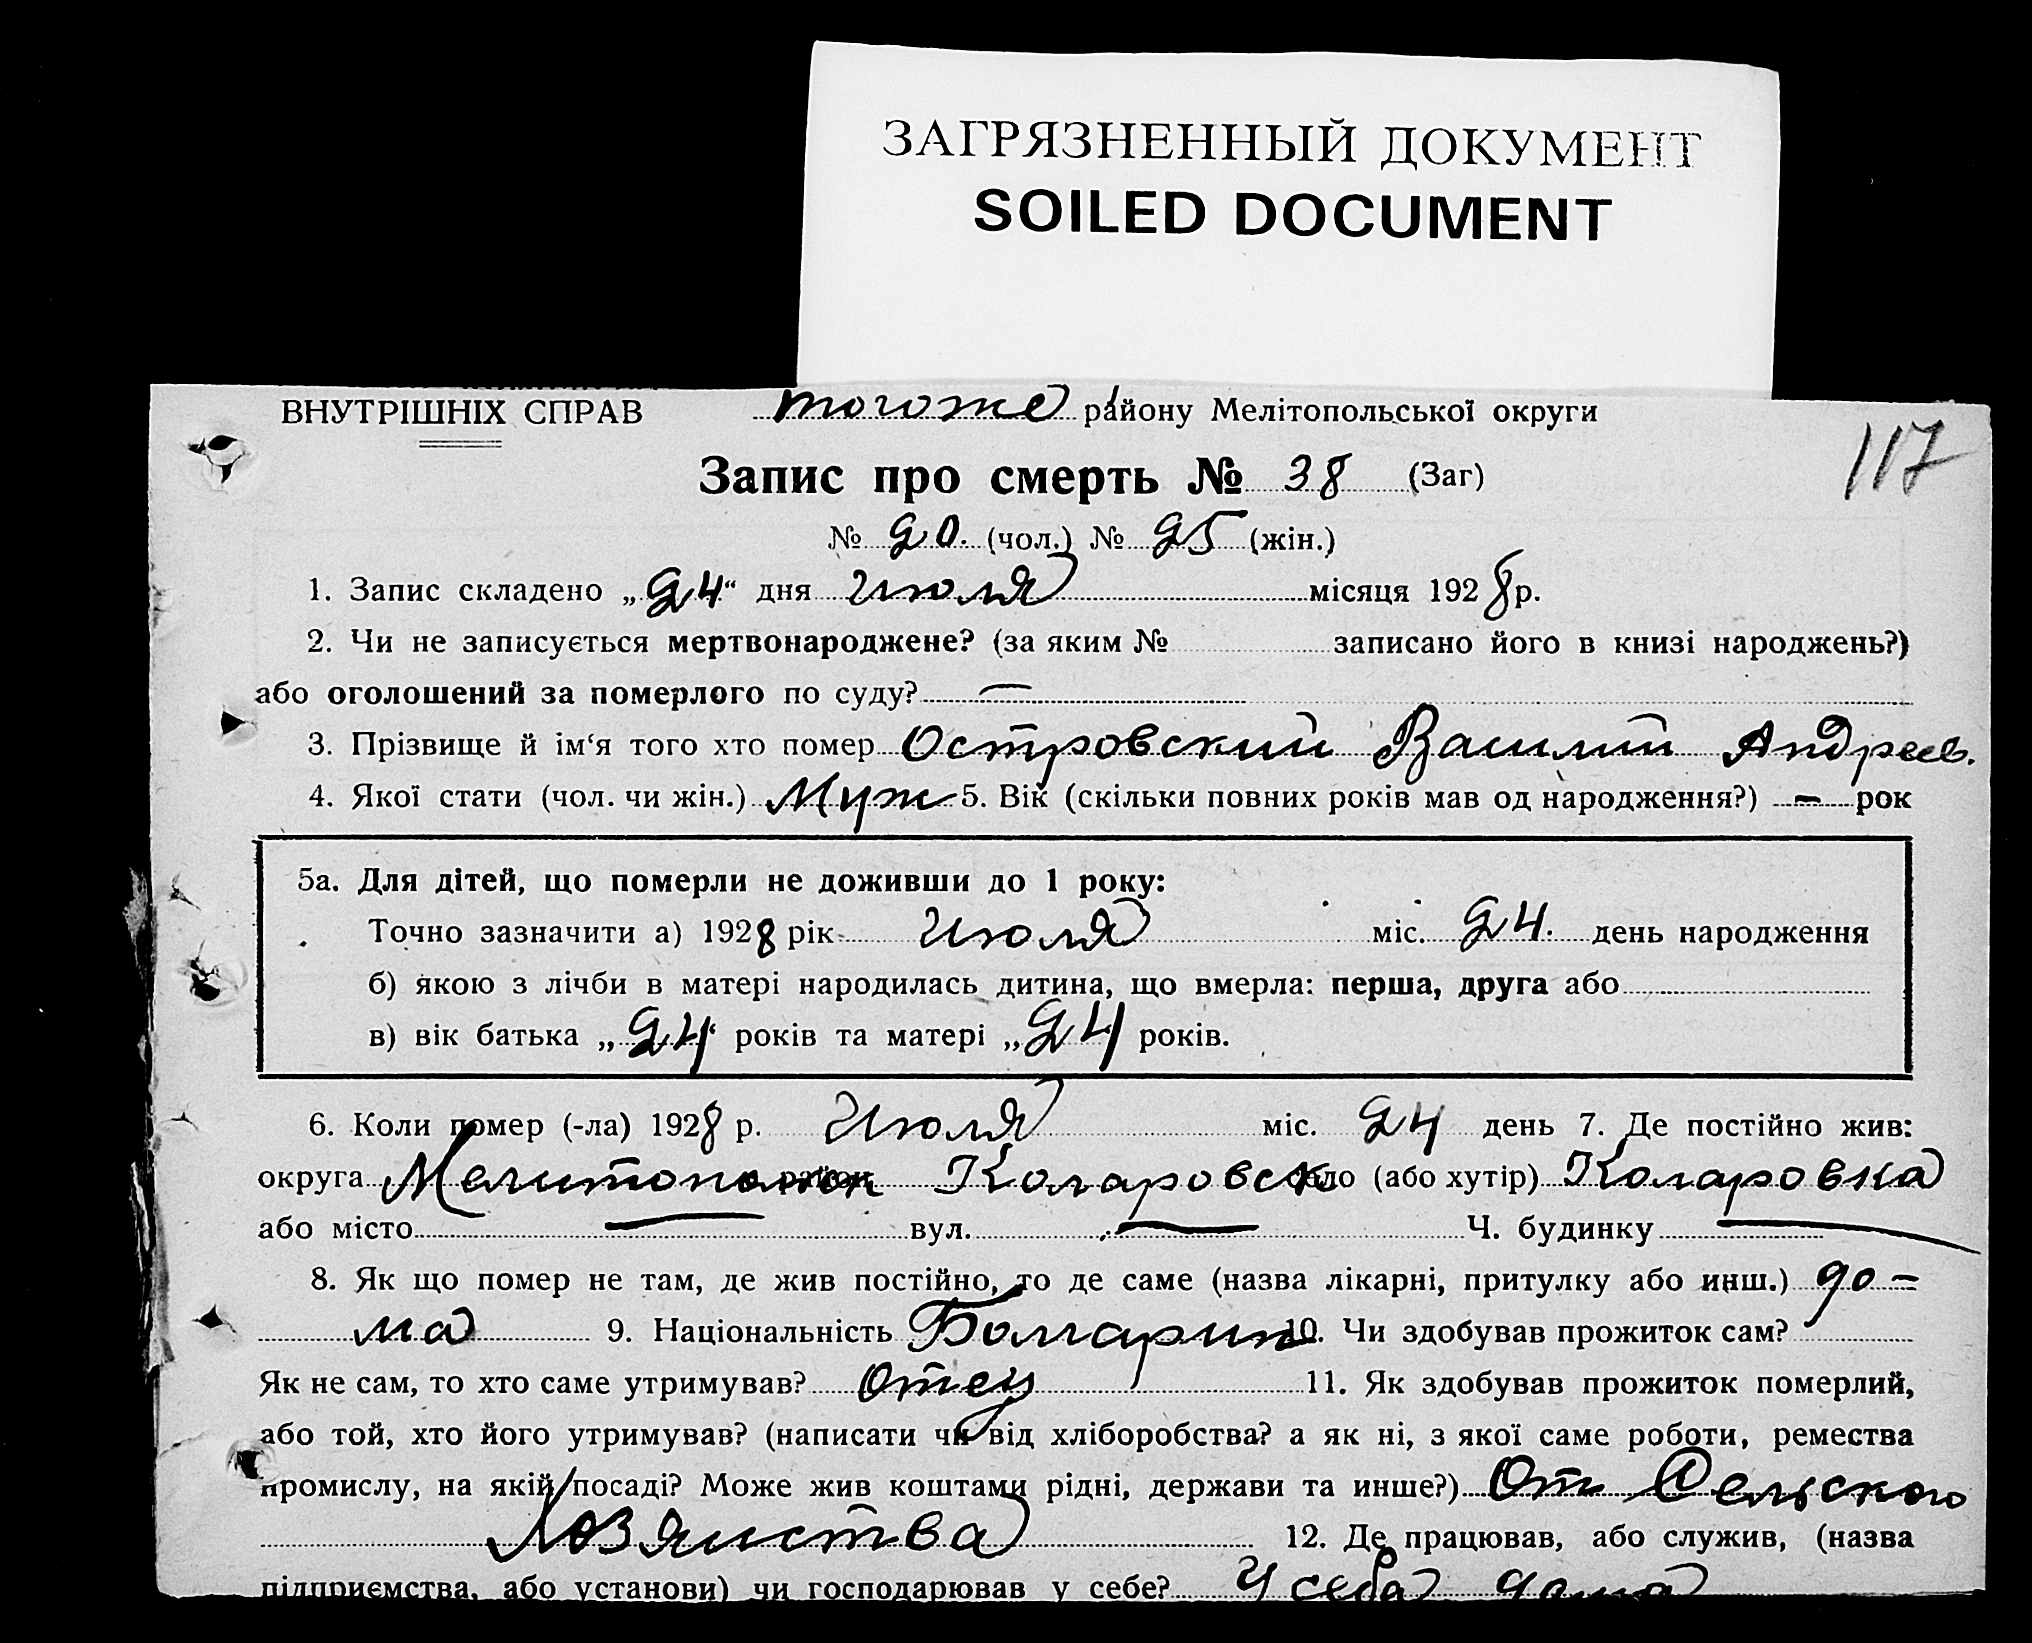 ЗАГРЯЗНЕННЫЙ ДОКУМЕНТ
SOILED DOCUMENT
ВНУТРІШНІХ СПРАВ тогоже району Мелітопольської округи
117
Запис про смерть № 38 (Заг)
№ 20. (чол.) № 25 (жін.)
1. Запис складено „24“ дня Июля місяця 1928 р.
2. Чи не записується мертвонароджене? (за яким № записано його в книзі народжень?)
або оголошений за померлого по суду? —
3. Прізвище й ім‘я того хто помер Островский Василий Андреев.
4. Якої стати (чол. чи жін.) Муж 5. Вік (скільки повних років мав од народження?) – рок
5а. Для дітей, що померли не доживши до 1 року:
Точно зазначити а) 1928 рік Июля міс. 24. день народження
б) якою з лічби в матері народилась дитина, що вмерла: перша, друга або
в) вік батька „24“ років та матері „24 років.
6. Коли помер (-ла) 1928 р. Июля міс. 24 день 7. Де постійно жив:
округа Мелитопольск район Коларовск село (або хутір) Коларовка
або місто — вул. — Ч. будинку —
8. Як що помер не там, де жив постійно, то де саме (назва лікарні, притулку або инш.) до-
ма 9. Національність Болгарин 10. Чи здобував прожиток сам?
Як не сам, то хто саме утримував? Отец 11. Як здобував прожиток померлий,
або той, хто його утримував? (написати чи від хліборобства? а як ні, з якої саме роботи, ремества
промислу, на якій посаді? Може жив коштами рідні, держави та инше?) От Сельского
Хозяиства 12. Де працював, або служив, (назва
підприємства, або установи) чи господарював у себе? У себа дома